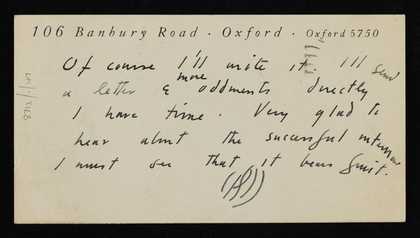 106 Banbury Road · Oxford · Oxford 5750
Of course I'll write it. I'll send
a letter & more oddments directly
I have time. Very glad to
hear about the successful interview
I must see that it bears fruit.